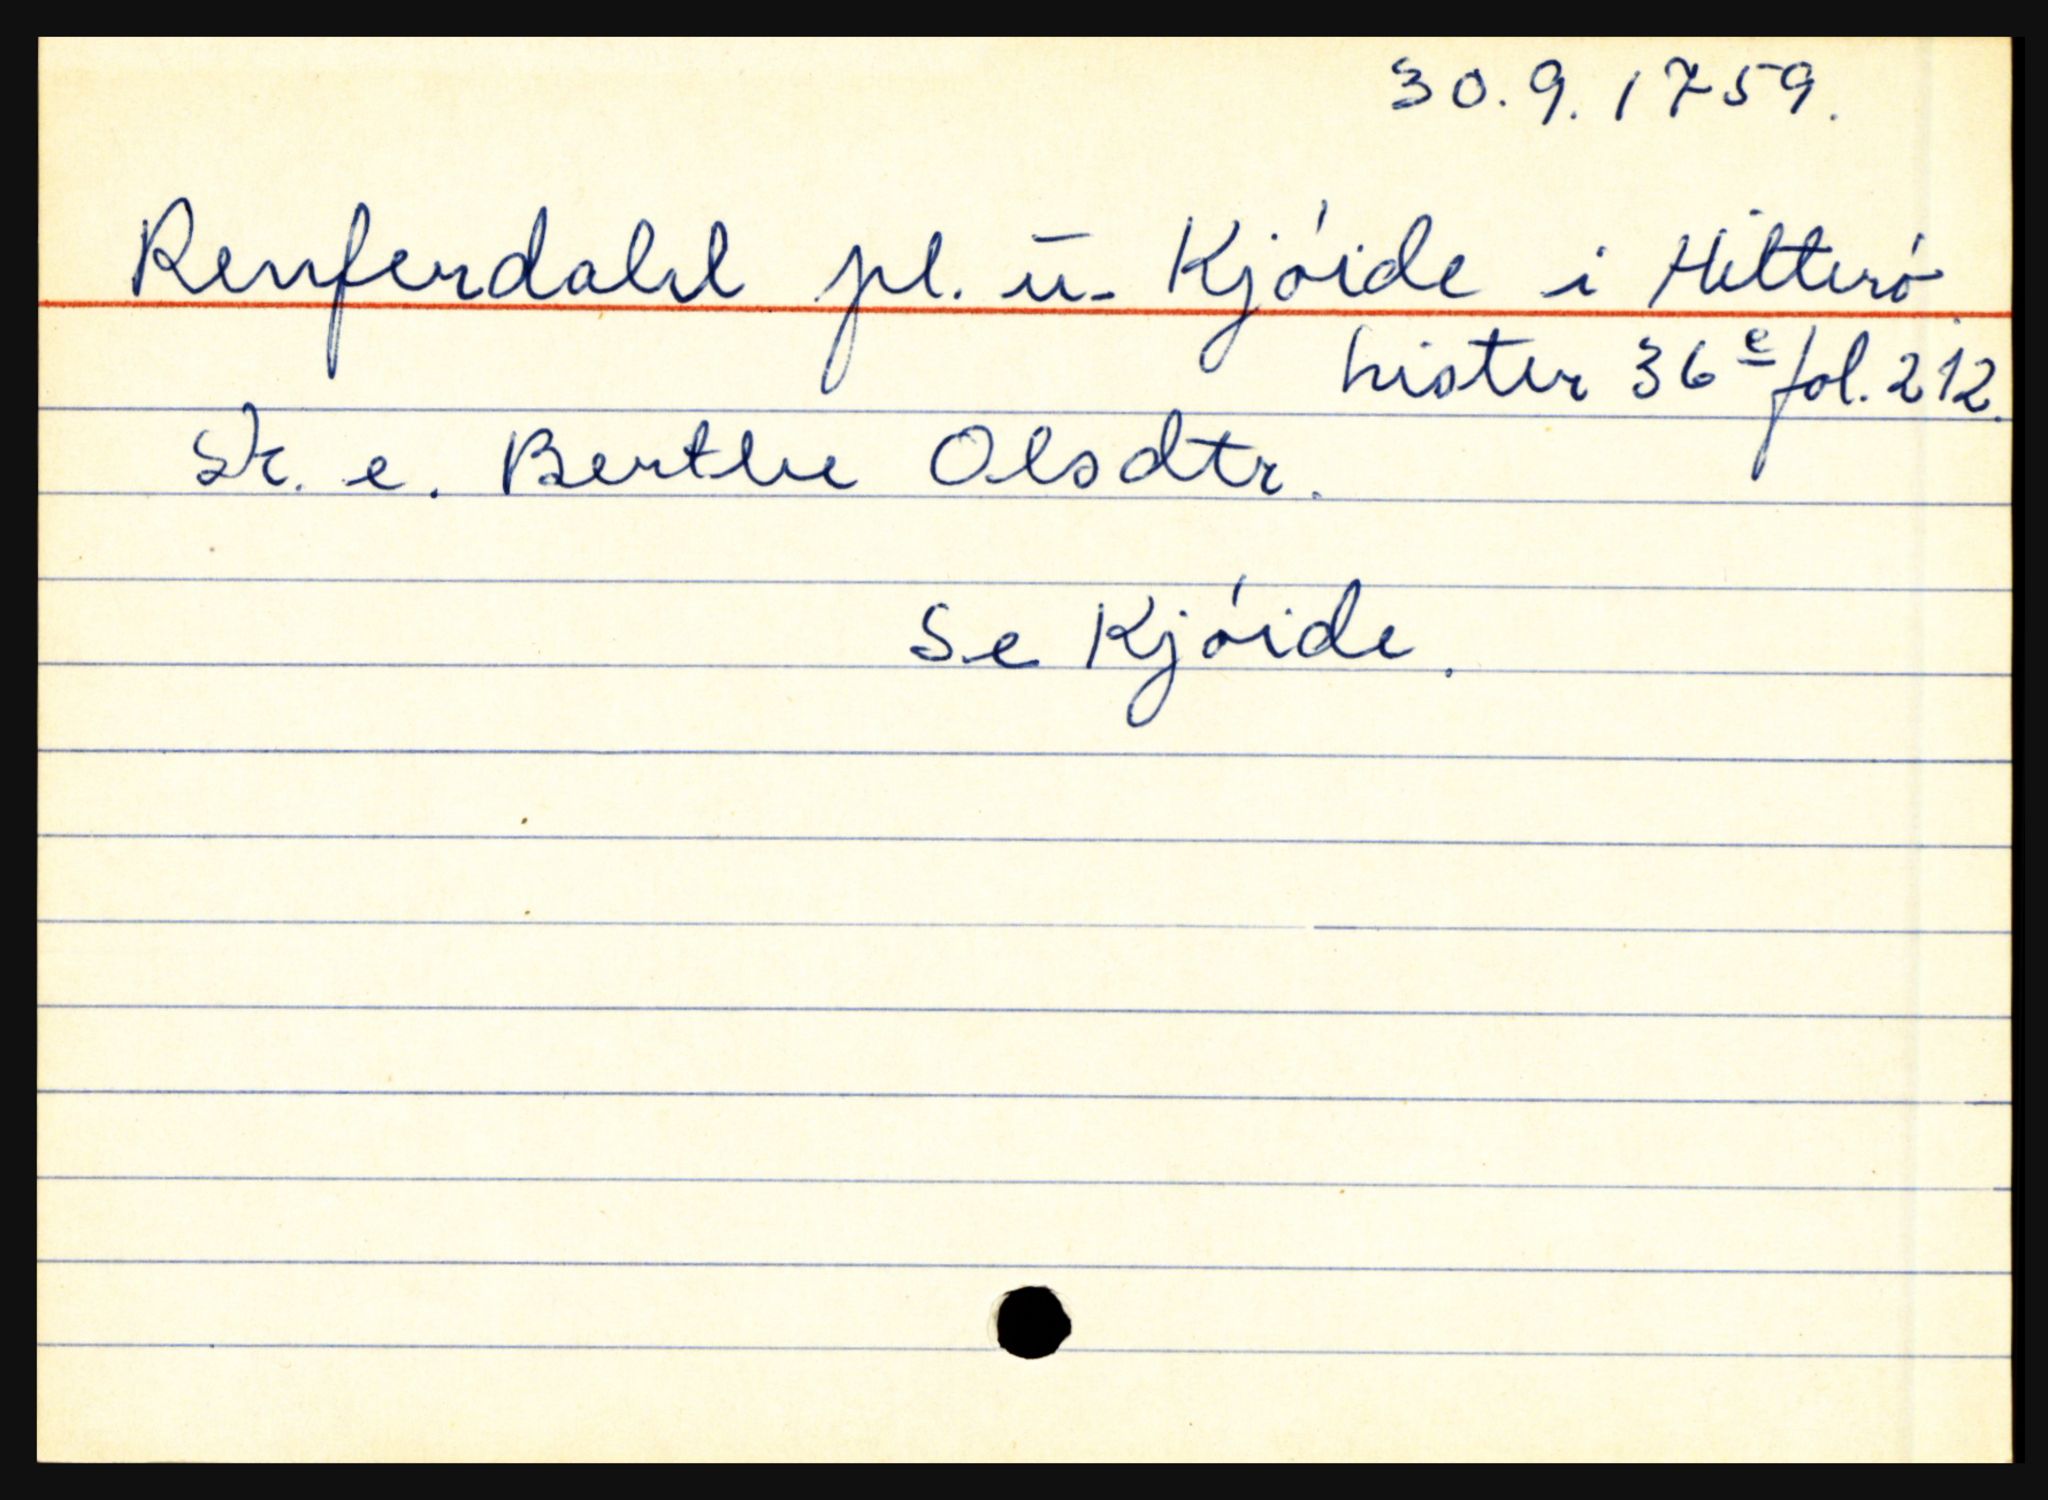 30.9.1759.
Renferdahl pl. u. Kjóide i Hitteró
Lister 36e fol. 212.
Sk. e. Berthe Olsdtr.
Se Kjóide.